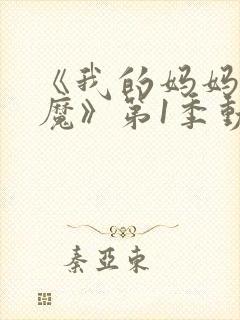 《我的妈妈
魔》第1季動
秦亚东